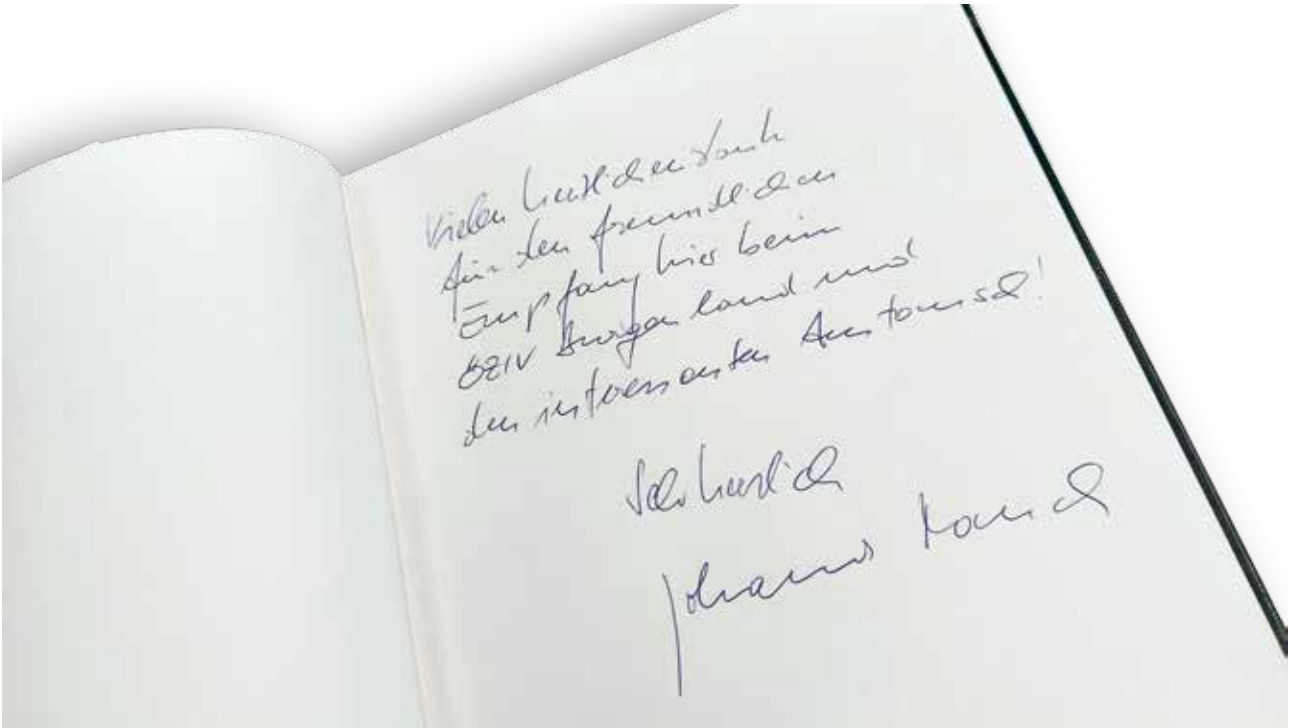 Vielen herzlichen Dank
für den freundlichen
Empfang hier beim
ÖZIV Burgenland und
den interessanten Austausch!
Sehr herzlich
Johannes